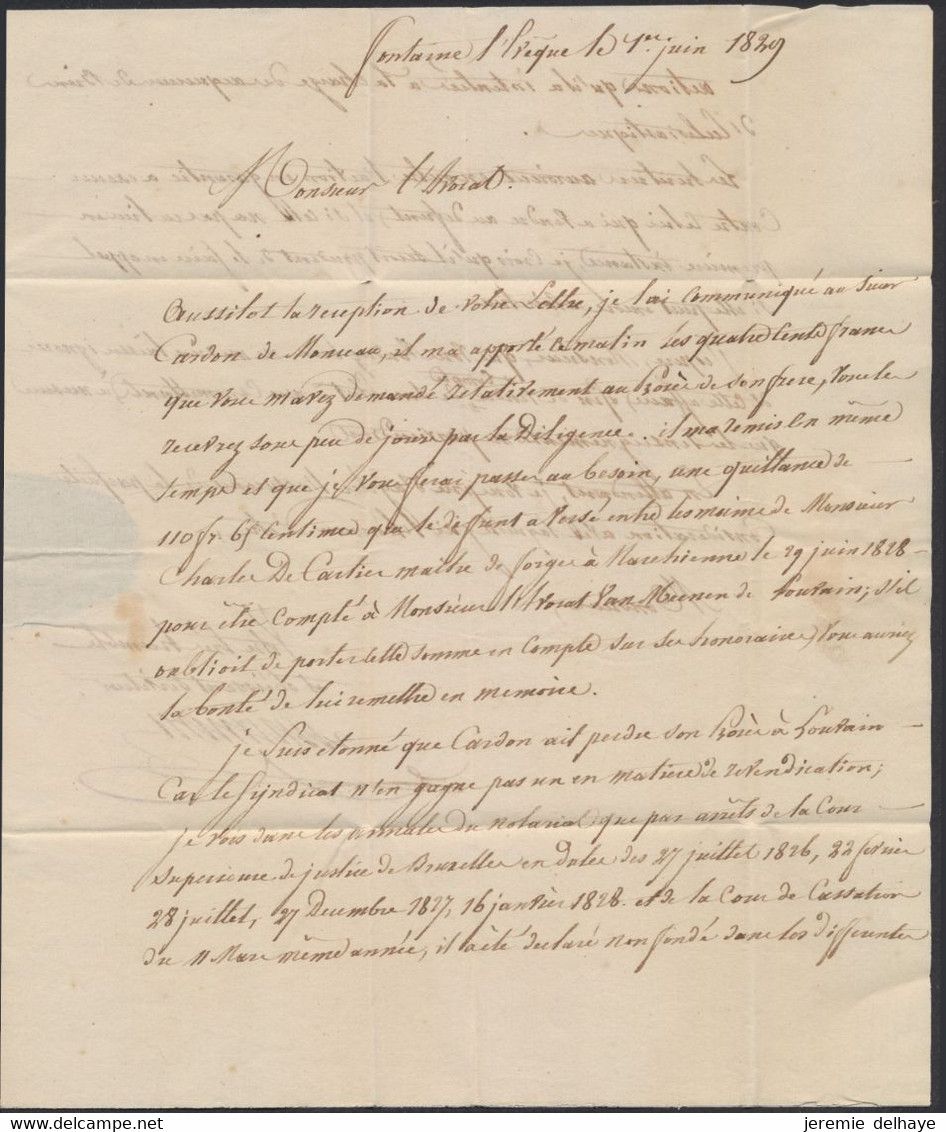 fontaine l'Evêque le 1er juin 1829
Monsieur l'Avocat.
Aussitot la reception de votre Lettre, je l'ai communiqué au Sieur
Cardon de Monceau, il m'a apporté ce matin les quatre cents francs
que vous m'avez demandé relativement au Procès de son frere, vous les
recevrez sous peu de jours par la Diligence. il m'a remis en même
temps et que je vous ferai passer au besoin, une quittance de
110 fr. 65 Centimes que le deffunt a versé entre les mains de Monsieur
Charles De Cartier maitre de forges à Marchienne le 29 juin 1828
pour être compté à Monsieur l'Avocat Van Meenen de Louvain; s'il
oublioit de porter cette somme en compte sur ses honoraires, vous auriez
la bonté de lui remettre en memoire.
je suis etonné que Cardon ait perdu son Procès à Louvain
Car le Syndicat n'en gagne pas un en matière de revendication;
je vois dans les annales du notariat que par arrêts de la Cour
Superieure de justice de Bruxelles en dates des 27 juillet 1826, 22 fevrier
28 juillet, 27 Decembre 1827, 16 janvier 1828. et de la Cour de Cassation
du 11 Mars même année, il a été declaré non fondé dans les differentes
jeremie delhaye